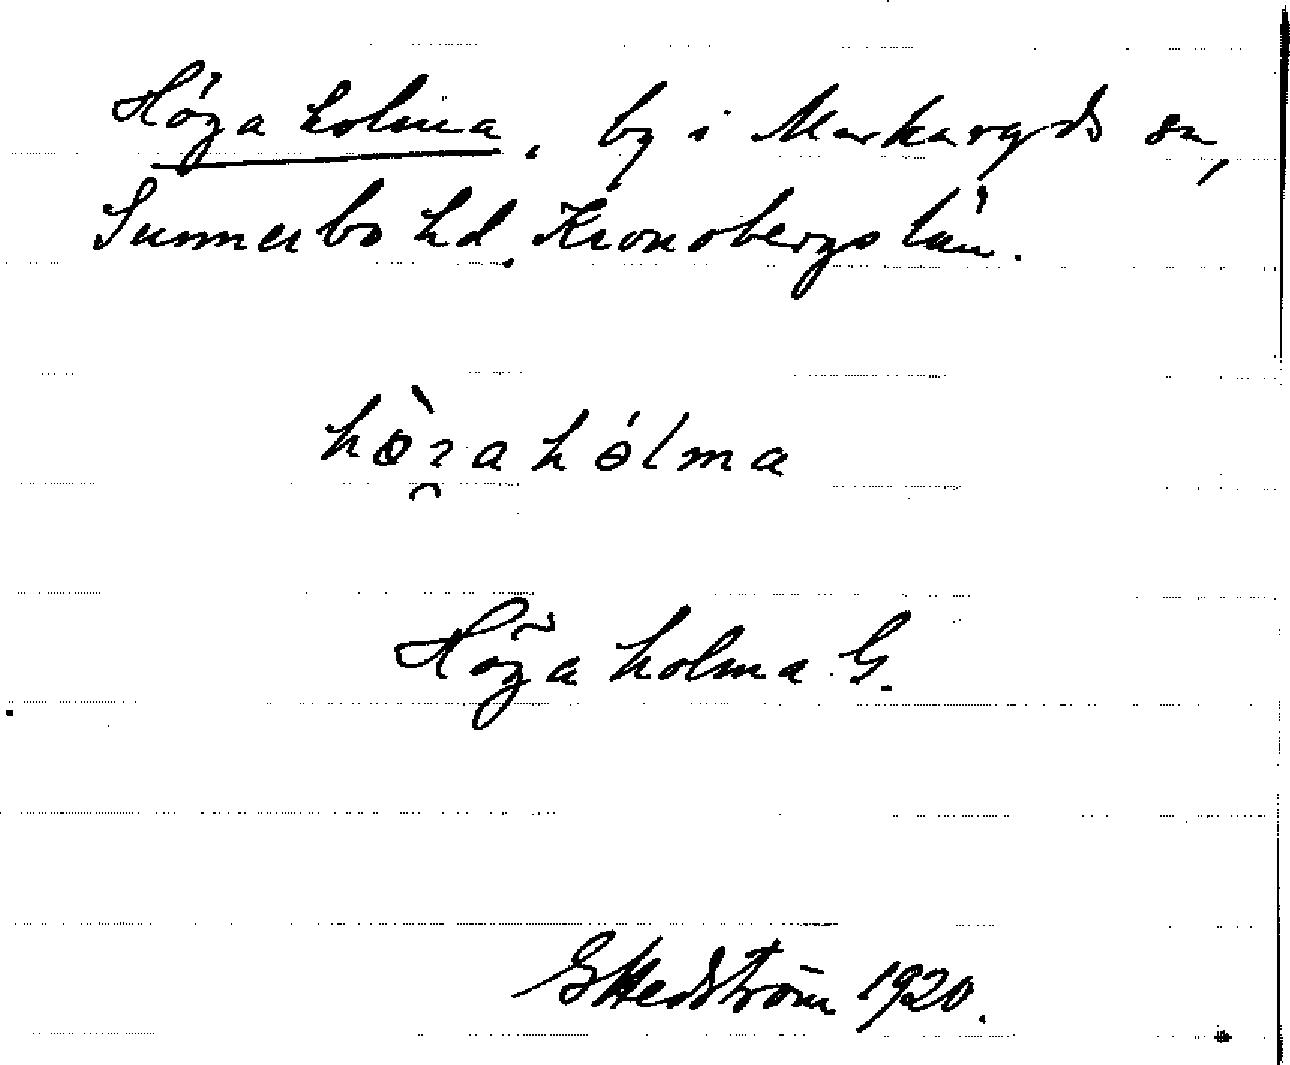 Höga holma, by i Markaryds sn,
Sunnerbo hd, Kronobergs län.
hö̀ga hólma
Höga holma G.
G Hedström 1920.